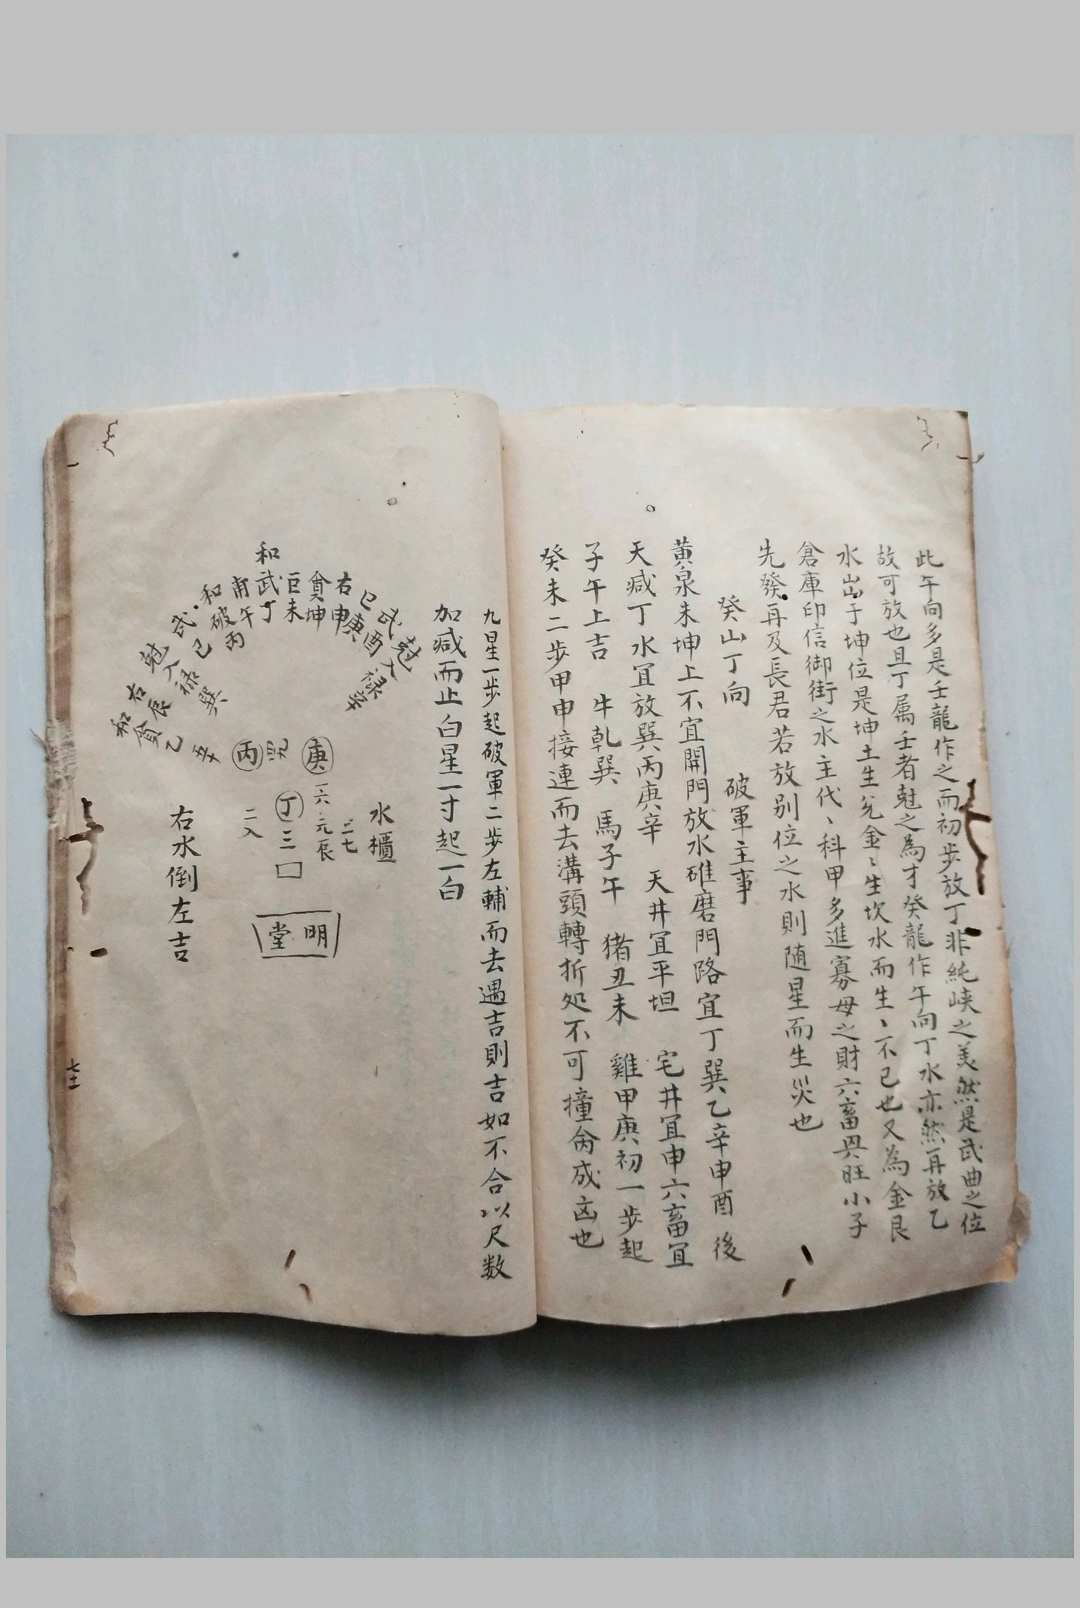 此午向多是壬龍作之而初步放丁非純峽之美然是武曲之位
故可放也且丁属壬者尅之為才癸龍作午向丁水亦然再放乙
水出于坤位是坤土生兌金〻生坎水而生〻不已也又為金艮
倉庫印信御街之水主代〻科甲多進寡母之財六畜興旺小子
先發再及長君若放别位之水則随星而生災也
癸山丁向 破軍主事
黄泉未坤上不宜開門放水碓磨門路宜丁巽乙辛申酉 後
天減丁水宜放巽丙庚辛 天井宜平坦 宅井宜申六畜宜
子午上吉 牛乾巽 馬子午 猪丑未 雞甲庚初一步起
癸未二步甲申接連而去溝頭轉折処不可撞侖成凶也
九星一步起破軍二步左輔而去遇吉則吉如不合以尺数
加减而止白星一寸起一白
尅入禄辛
武酉
巳庚
右申
貪坤
巨未
和武丁
甫午
和破丙
武巳
尅入禄巽
右辰
和貪乙
水櫃
二七
庚 一六 元辰
丁三口
丙
二八
明堂
右水倒左吉
七十一